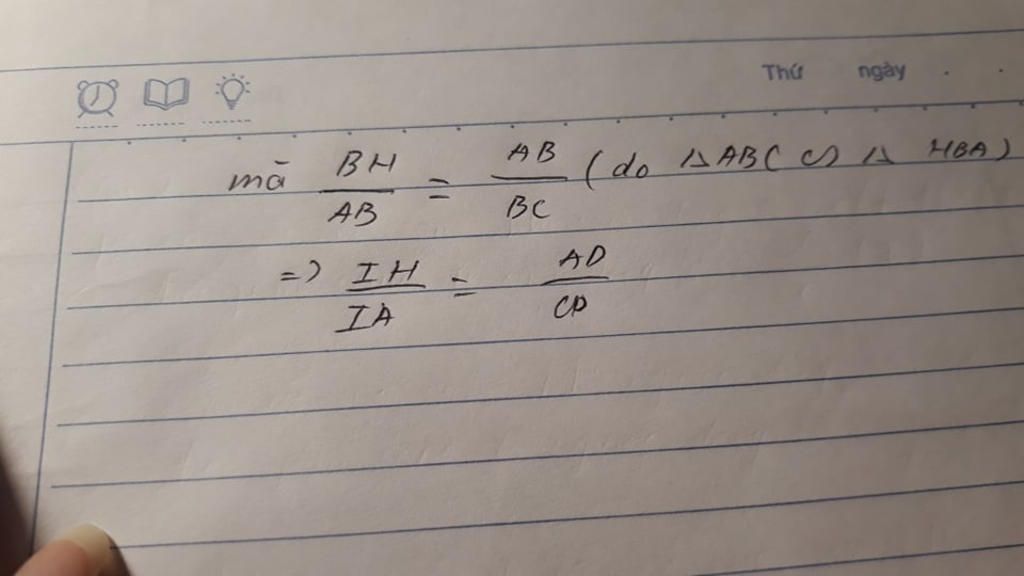 Thứ ngày . .
mà BH/AB = AB/BC (do △ABC ∽ △HBA)
=> IH/IA = AD/CD